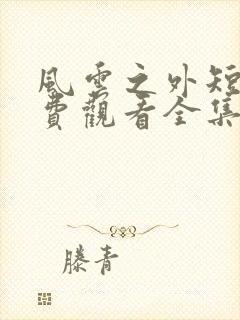 風雲之外短
費觀看全集
滕青